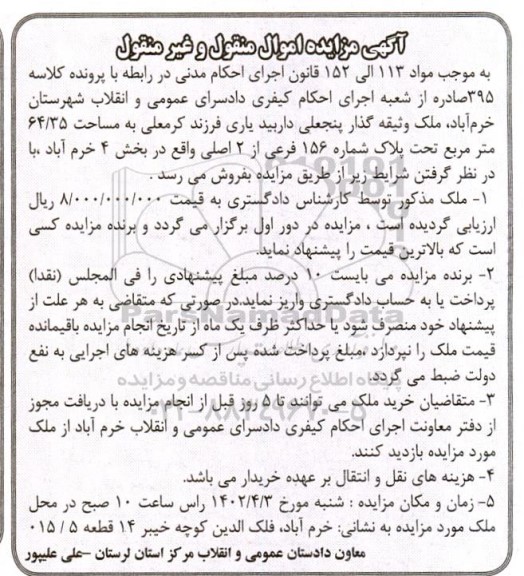 آگهی مزایده اموال منقول و غیر منقول
به موجب مواد ۱۱۳ الی ۱۵۲ قانون اجرای احکام مدنی در رابطه با پرونده کلاسه
۳۹۵صادره از شعبه اجرای احکام کیفری دادسرای عمومی و انقلاب شهرستان
خرم‌آباد، ملک وثیقه گذار پنجعلی داربید یاری فرزند کرمعلی به مساحت ۶۴/۳۵
متر مربع تحت پلاک شماره ۱۵۶ فرعی از ۲ اصلی واقع در بخش ۴ خرم آباد ،با
در نظر گرفتن شرایط زیر از طریق مزایده بفروش می رسد .
۱- ملک مذکور توسط کارشناس دادگستری به قیمت ۸/۰۰۰/۰۰۰/۰۰۰ ریال
ارزیابی گردیده است ، مزایده در دور اول برگزار می گردد و برنده مزایده کسی
است که بالاترین قیمت را پیشنهاد نماید.
۲- برنده مزایده می بایست ۱۰ درصد مبلغ پیشنهادی را فی المجلس (نقدا)
پرداخت یا به حساب دادگستری واریز نماید.در صورتی که متقاضی به هر علت از
پیشنهاد خود منصرف شود یا حداکثر ظرف یک ماه از تاریخ انجام مزایده باقیمانده
قیمت ملک را نپردازد ،مبلغ پرداخت شده پس از کسر هزینه های اجرایی به نفع
دولت ضبط می گردد.
۳- متقاضیان خرید ملک می توانند تا ۵ روز قبل از انجام مزایده با دریافت مجوز
از دفتر معاونت اجرای احکام کیفری دادسرای عمومی و انقلاب خرم آباد از ملک
مورد مزایده بازدید کنند.
۴- هزینه های نقل و انتقال بر عهده خریدار می باشد.
۵- زمان و مکان مزایده : شنبه مورخ ۱۴۰۲/۴/۳ راس ساعت ۱۰ صبح در محل
ملک مورد مزایده به نشانی: خرم آباد، فلک الدین کوچه خیبر ۱۴ قطعه ۵ / ۰۱۵
معاون دادستان عمومی و انقلاب مرکز استان لرستان -علی علیپور
ParsNamadData
پایگاه اطلاع رسانی مناقصه و مزایده
۰۲۱-۸۸۳۴۹۶۷۰-۵